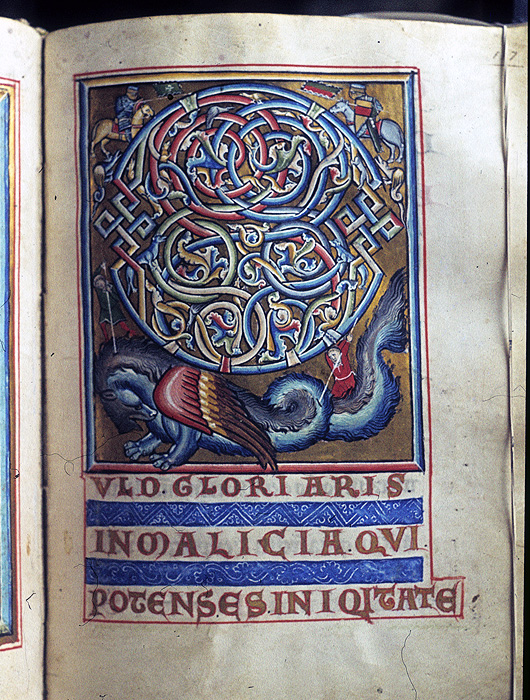 VLD. GLORI ARIS.
IN MALICIA. QVI.
POTENS. ES. IN INIQITATE